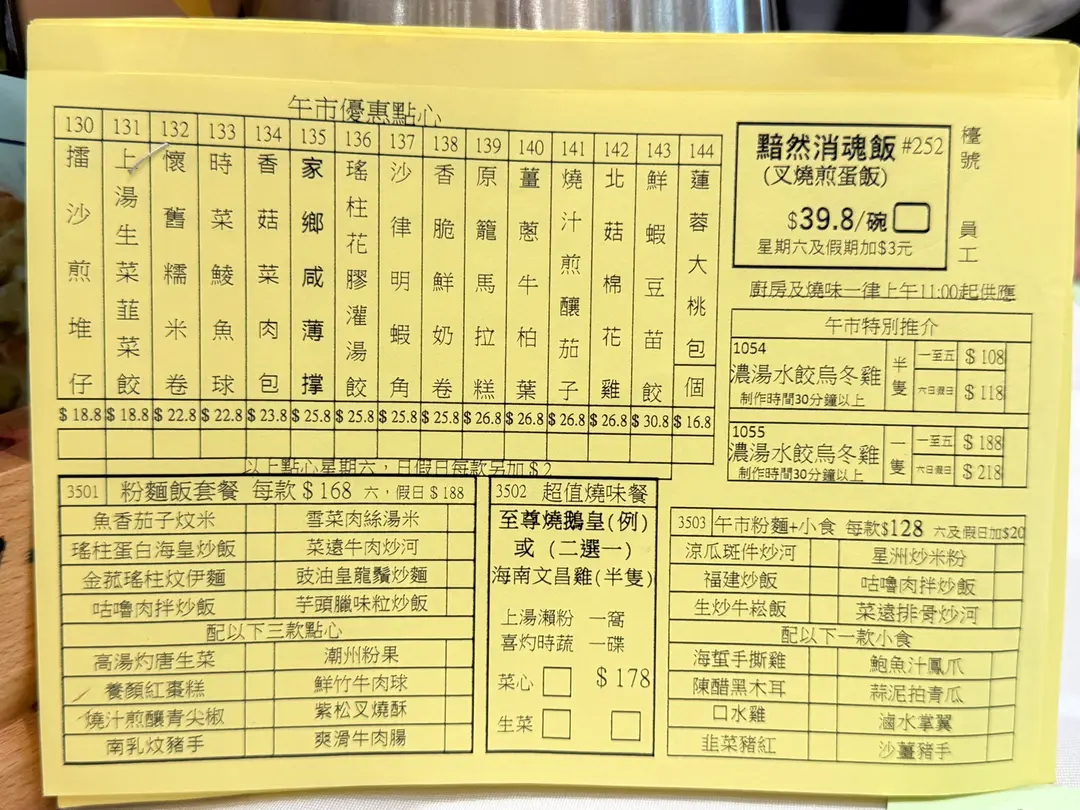 午市優惠點心
130 131 132 133 134 135 136 137 138 139 140 141 142 143 144
擂沙煎堆仔
上湯生菜韮菜餃
懷舊糯米卷
時菜鯪魚球
香菇菜肉包
家鄉咸薄撐
瑤柱花膠灌湯餃
沙律明蝦角
香脆鮮奶卷
原籠馬拉糕
薑蔥牛柏葉
燒汁煎釀茄子
北菇棉花雞
鮮蝦豆苗餃
蓮蓉大桃包 個
$18.8 $18.8 $22.8 $22.8 $23.8 $25.8 $25.8 $25.8 $25.8 $26.8 $26.8 $26.8 $26.8 $30.8 $16.8
以上點心星期六，日假日每款另加$2
黯然消魂飯 #252
(叉燒煎蛋飯)
$39.8/碗
星期六及假期加$3元
檯號
員工
廚房及燒味一律上午11:00起供應
午市特別推介
1054
濃湯水餃烏冬雞
制作時間30分鐘以上
半隻
一至五 $108
六日假日 $118
1055
濃湯水餃烏冬雞
制作時間30分鐘以上
一隻
一至五 $188
六日假日 $218
3501 粉麵飯套餐 每款$168 六，假日$188
魚香茄子炆米 雪菜肉絲湯米
瑤柱蛋白海皇炒飯 菜遠牛肉炒河
金菰瑤柱炆伊麵 豉油皇龍鬚炒麵
咕嚕肉拌炒飯 芋頭臘味粒炒飯
配以下三款點心
高湯灼唐生菜 潮州粉果
養顏紅棗糕 鮮竹牛肉球
燒汁煎釀青尖椒 紫松叉燒酥
南乳炆豬手 爽滑牛肉腸
3502 超值燒味餐
至尊燒鵝皇(例)
或 (二選一)
海南文昌雞(半隻)
上湯瀨粉 一窩
喜灼時蔬 一碟
菜心 $178
生菜
3503 午市粉麵+小食 每款$128 六及假日加$20
涼瓜斑件炒河 星洲炒米粉
福建炒飯 咕嚕肉拌炒飯
生炒牛崧飯 菜遠排骨炒河
配以下一款小食
海蜇手撕雞 鮑魚汁鳳爪
陳醋黑木耳 蒜泥拍青瓜
口水雞 滷水掌翼
韭菜豬紅 沙薑豬手